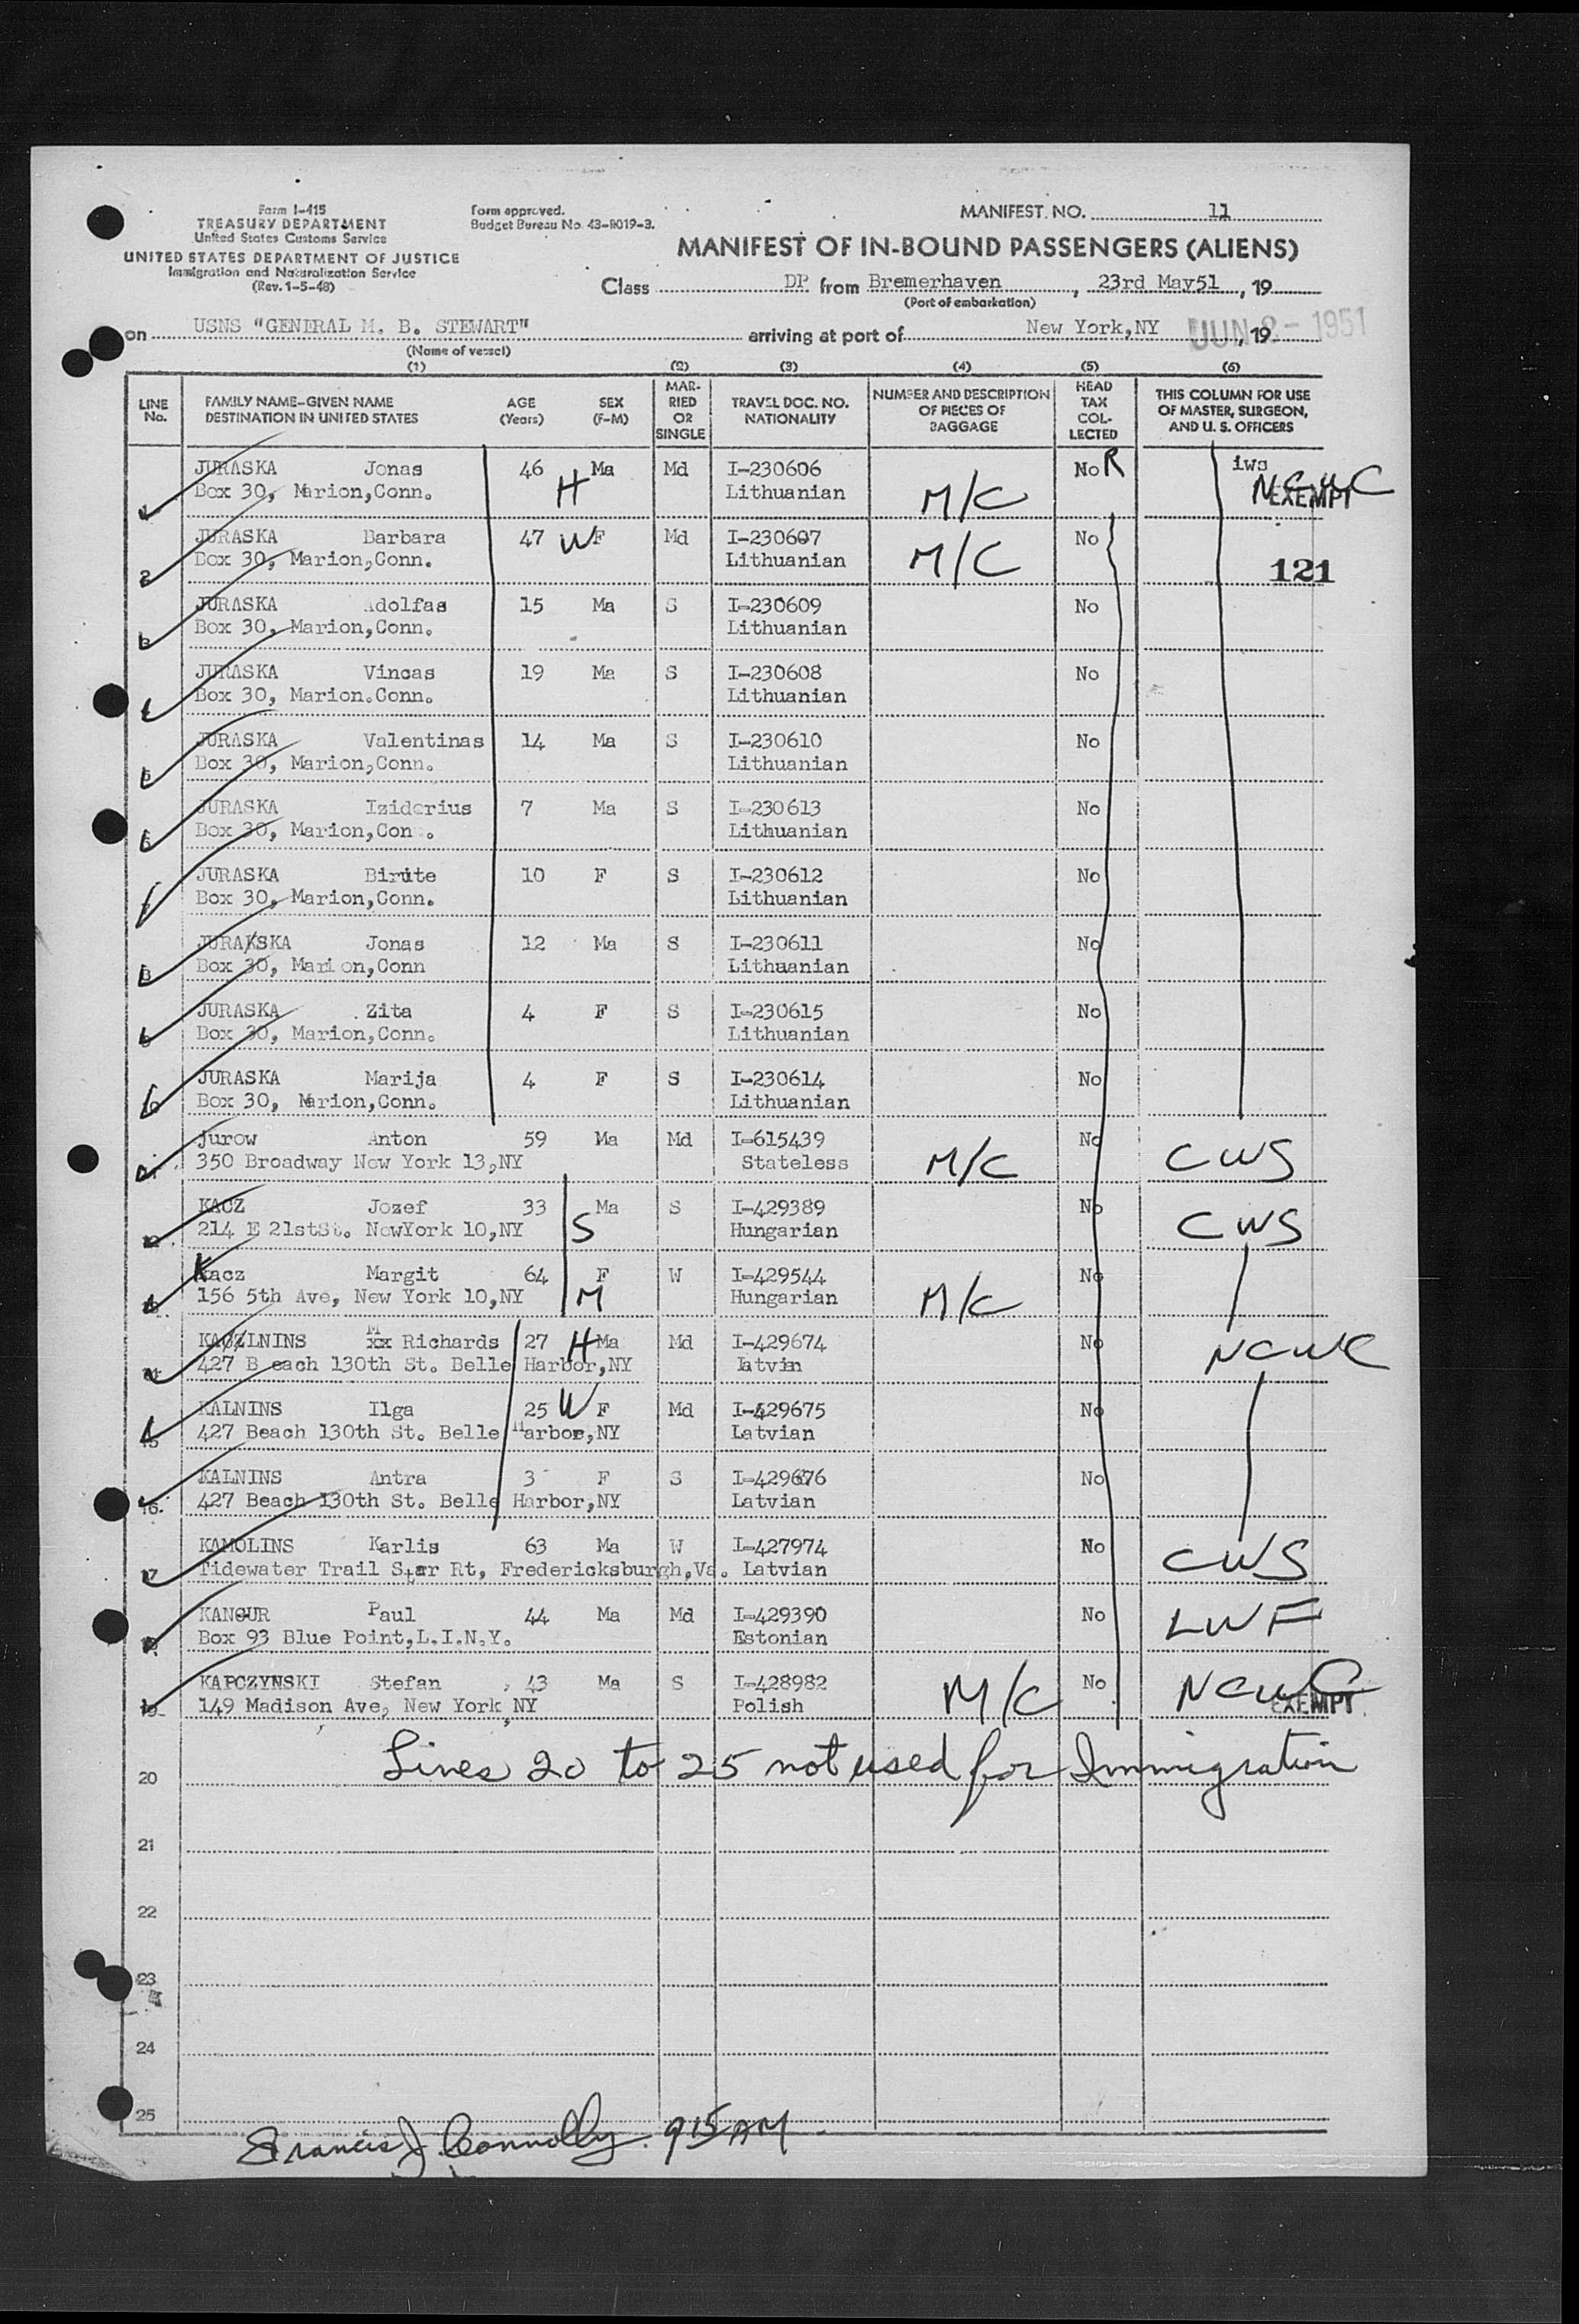 Form I-415
TREASURY DEPARTMENT
United States Customs Service
UNITED STATES DEPARTMENT OF JUSTICE
Immigration and Naturalization Service
(Rev. 1-5-48)
Form approved.
Budget Bureau No. 43-R019-3.
MANIFEST NO. 11
MANIFEST OF IN-BOUND PASSENGERS (ALIENS)
Class DP from Bremerhaven, 23rd May51, 19
(Port of embarkation)
on USNS "GENERAL M. B. STEWART" arriving at port of New York,NY JUN 2 - 1951, 19
(Name of vessel)
(1) (2) (3) (4) (5) (6)
LINE No. FAMILY NAME-GIVEN NAME DESTINATION IN UNITED STATES AGE (Years) SEX (F-M) MARRIED OR SINGLE TRAVEL DOC. NO. NATIONALITY NUMBER AND DESCRIPTION OF PIECES OF BAGGAGE HEAD TAX COLLECTED THIS COLUMN FOR USE OF MASTER, SURGEON, AND U. S. OFFICERS
JURASKA Jonas 46 H Ma Md I-230606 M/C No R iws NCWC
1 Box 30, Marion,Conn. Lithuanian EXEMPT
JURASKA Barbara 47 W F Md I-230607 M/C No
2 Box 30, Marion,Conn. Lithuanian 121
JURASKA Adolfas 15 Ma S I-230609 No
3 Box 30, Marion,Conn. Lithuanian
JURASKA Vincas 19 Ma S I-230608 No
4 Box 30, Marion.Conn. Lithuanian
JURASKA Valentinas 14 Ma S I-230610 No
5 Box 30, Marion,Conn. Lithuanian
JURASKA Iziderius 7 Ma S I-230613 No
6 Box 30, Marion,Con . Lithuanian
JURASKA Birute 10 F S I-230612 No
7 Box 30, Marion,Conn. Lithuanian
JURAKSKA Jonas 12 Ma S I-230611 No
8 Box 30, Marion,Conn Lithuanian
JURASKA Zita 4 F S I-230615 No
9 Box 30, Marion,Conn. Lithuanian
JURASKA Marija 4 F S I-230614 No
10 Box 30, Marion,Conn. Lithuanian
jurow Anton 59 Ma Md I-615439 M/C No CWS
11 350 Broadway New York 13,NY Stateless
KACZ Jozef 33 Ma S I-429389 No CWS
12 214 E 21stSt. NewYork 10,NY S Hungarian
Kacz Margit 64 F W I-429544 M/C No
13 156 5th Ave, New York 10,NY M Hungarian
KACZLNINS M xx Richards 27 H Ma Md I-429674 No NCWC
14 427 B each 130th St. Belle Harbor,NY Latvin
KALNINS Ilga 25 W F Md I-429675 No
15 427 Beach 130th St. Belle Harbor,NY Latvian
KALNINS Antra 3 F S I-429676 No
16 427 Beach 130th St. Belle Harbor,NY Latvian
KAMOLINS Karlis 63 Ma W I-427974 No CWS
17 Tidewater Trail Star Rt, Fredericksburgh,Va. Latvian
KANGUR Paul 44 Ma Md I-429390 No LWF
18 Box 93 Blue Point,L.I.N.Y. Estonian
KAPCZYNSKI Stefan 43 Ma S I-428982 M/C No NCWC
19 149 Madison Ave, New York,NY Polish EXEMPT
Lines 20 to 25 not used for Immigration
20
21
22
23
24
25
Francis J. Connolly 915 AM